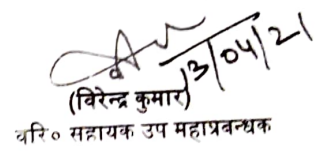 13/04/21
(विरेन्द्र कुमार)
वरि० सहायक उप महाप्रबन्धक